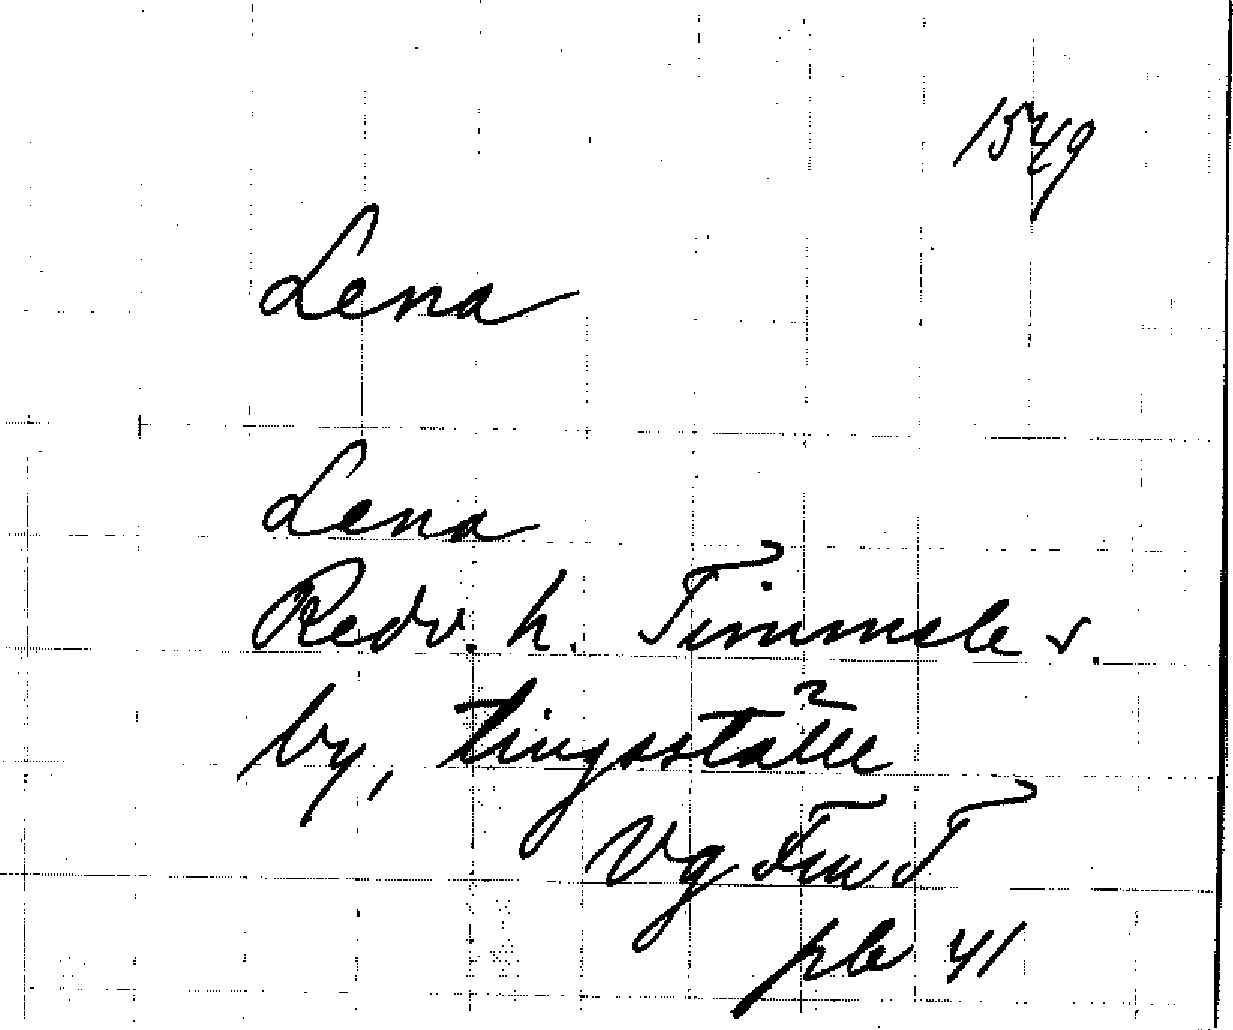 1549
Lena
Lena
Redv. h. Timmele s.
by, tingsställe
Vg FmT
pb 41